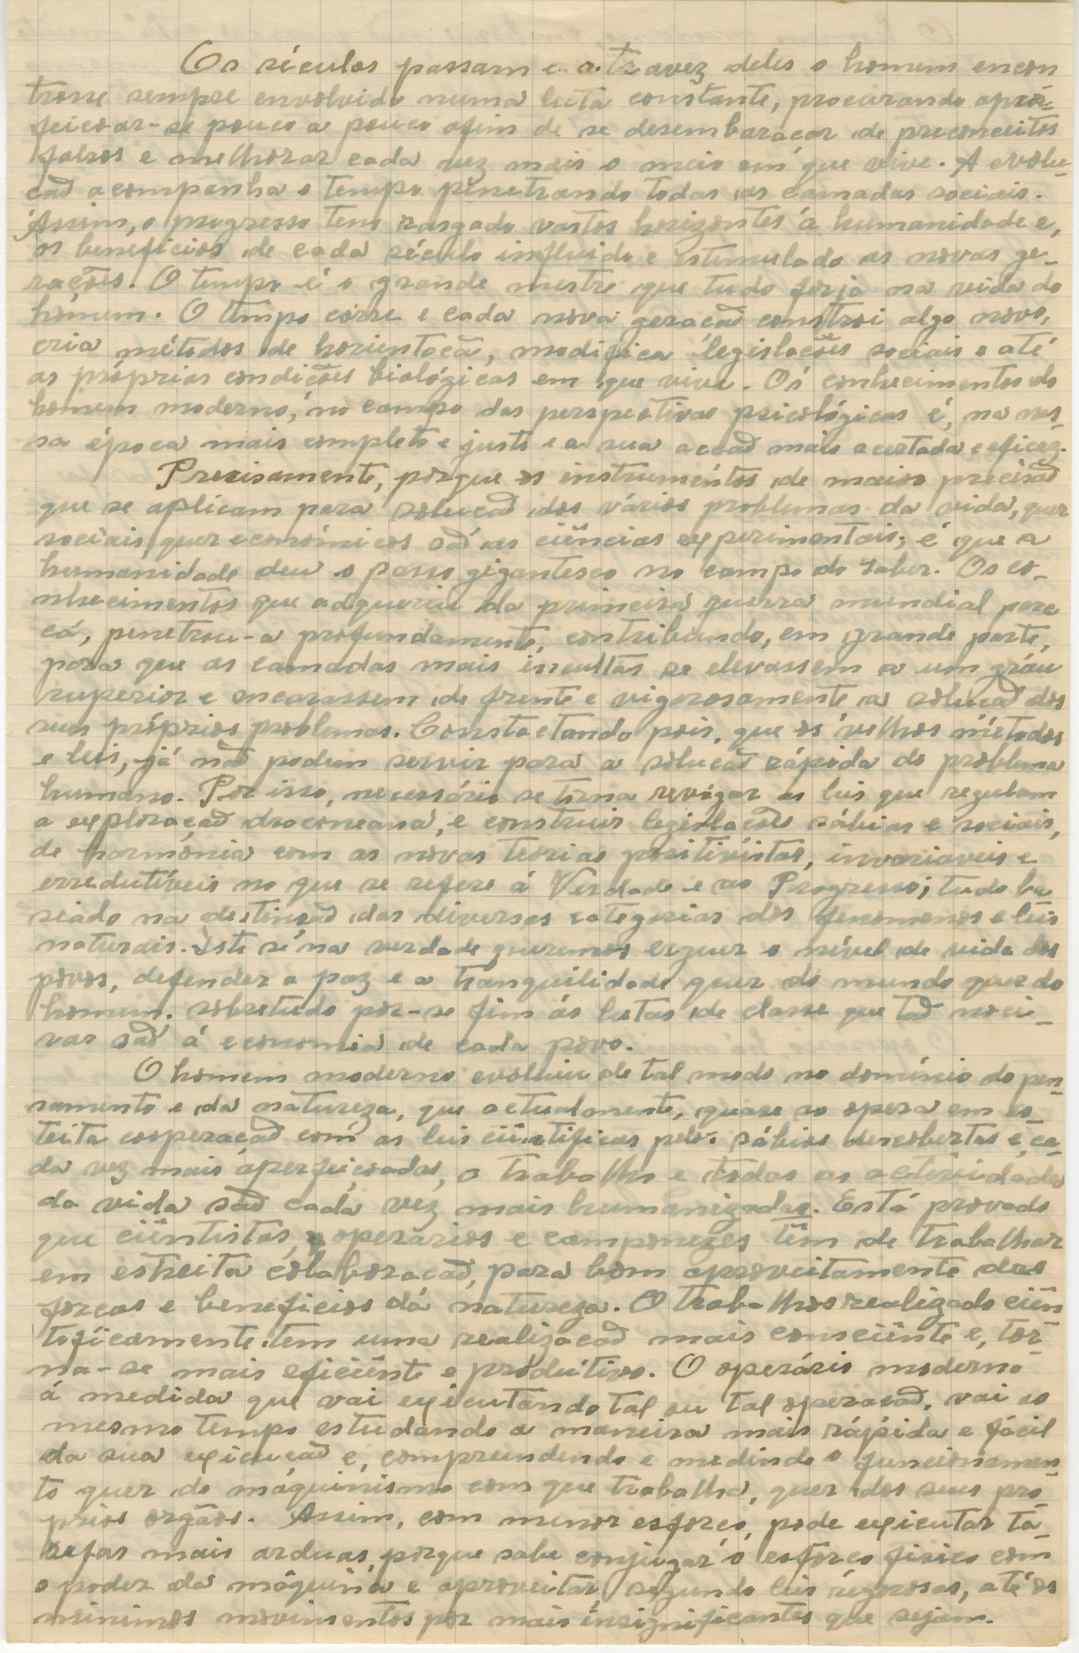 Os séculos passam e atravez deles o homem encon
trasse sempre envolvido numa luta constante, procurando aper-
feiçoar-se pouco a pouco afim de se desembaraçar de preconceitos
falsos e melhorar cada vez mais o meio em que vive. A evolu-
ção acompanha o tempo penetrando todas as camadas sociais.
Assim, o progresso tem rasgado vastos horizontes á humanidade e,
os benefícios de cada século influido e estimulado as novas ge-
rações. O tempo é o grande mestre que tudo forja na vida do
homem. O tempo corre e cada nova geração constroi algo novo,
cria métodos de horientação, modifica legislações sociais e até
as próprias condições biológicas em que vive. Os conhecimentos do
homem moderno, no campo das perspectivas psicológicas é, na nos-
sa época mais completo e justo e a sua acção mais acertada e eficaz.
Precisamente, porque os instrumentos de maior precisão
que se aplicam para solução dos vários problemas da vida, quer
sociais quer económicos são as ciências experimentais; é que a
humanidade deu o passo gigantesco no campo do saber. Os co-
nhecimentos que adqueriu da primeira guerra mundial para
cá, penetrou-a profundamente, contribuindo, em grande parte,
para que as camadas mais incultas se elevassem a um gráu
superior e encarassem de frente e vigorosamente a solução dos
seus próprios problemas. Constactando pois, que os velhos métodos
e leis, já não podem servir para a solução rápida do problema
humano. Por isso, necessário se torna revogar as leis que regulam
a exploração draconeana, e construir legislações sábias e sociais,
de harmónia com as novas teorias positivistas, invariaveis e
erredutíveis no que se refere á Verdade e ao Progresso; tudo ba
seado na destinção das diversas categorias dos fenomenos e leis
naturais. Isto se na verdade queremos erguer o nível de vida dos
povos, defender a paz e a tranquilidade quer do mundo quer do
homem. sobretudo pôr-se fim ás lutas de classe que tão noci-
vas são á economia de cada povo.
O homem moderno evoluiu de tal modo no domínio do pen-
samento e da natureza, que actualmente, quase só opera em es-
treita cooperação com as leis ciêntificas pelos sábios descobertas e ca
da vez mais aperfeiçoadas, o trabalho e todas as actividades
da vida são cada vez mais humanizadas. Está provado
que ciêntistas, operários e camponezes têm de trabalhar
em estreita colaboração, para bom aproveitamento das
forças e beneficios dá natureza. O trabalho realizado ciên
tificamente tem uma realização mais consciênte e, tor-
na-se mais eficiênte e produtivo. O operário moderno
á medida que vai executando tal ou tal operação, vai ao
mesmo tempo estudando a maneira mais rápida e fácil
da sua execução e, compreendendo e medindo o funcionamen-
to quer do máquinismo com que trabalha, quer dos seus pró
prios orgãos. Assim, com menor esforço, pode executar ta-
refas mais arduas, porque sabe conjugar o esforço fisico com
o poder da máquina e aproveitar, segundo leis regorosas, até os
minimos movimentos por mais insignificantes que sejam.